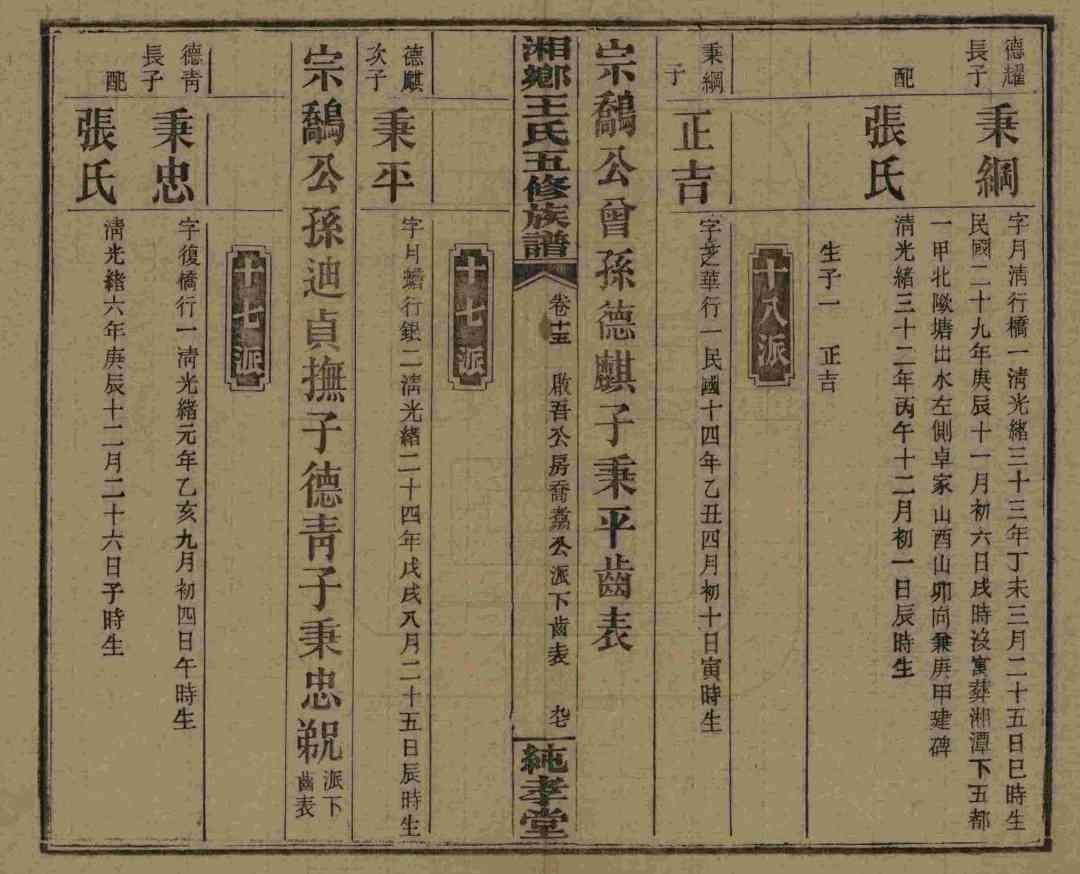 德耀
長子
秉綱
字月淸行橋一淸光緒三十三年丁未三月二十五日巳時生
民國二十九年庚辰十一月初六日戌時沒寓葬湘潭下五都
一甲北歐塘出水左側卓家山酉山卯向兼庚甲建碑
配
張氏
淸光緒三十二年丙午十二月初一日辰時生
生子一 正吉
十八派
秉綱
子
正吉
字芝華行一民國十四年乙丑四月初十日寅時生
宗鷸公曾孫德麒子秉平齒表
湘鄉王氏五修族譜
卷十五 啟吾公房喬嵩公派下齒表
純孝堂
十七派
德麒
次子
秉平
字月蟾行銀二淸光緒二十四年戊戌八月二十五日辰時生
宗鷸公孫迪貞撫子德靑子秉忠
派下
齒表
十七派
德靑
長子
秉忠
字復橋行一淸光緒元年乙亥九月初四日午時生
配
張氏
淸光緒六年庚辰十二月二十六日子時生